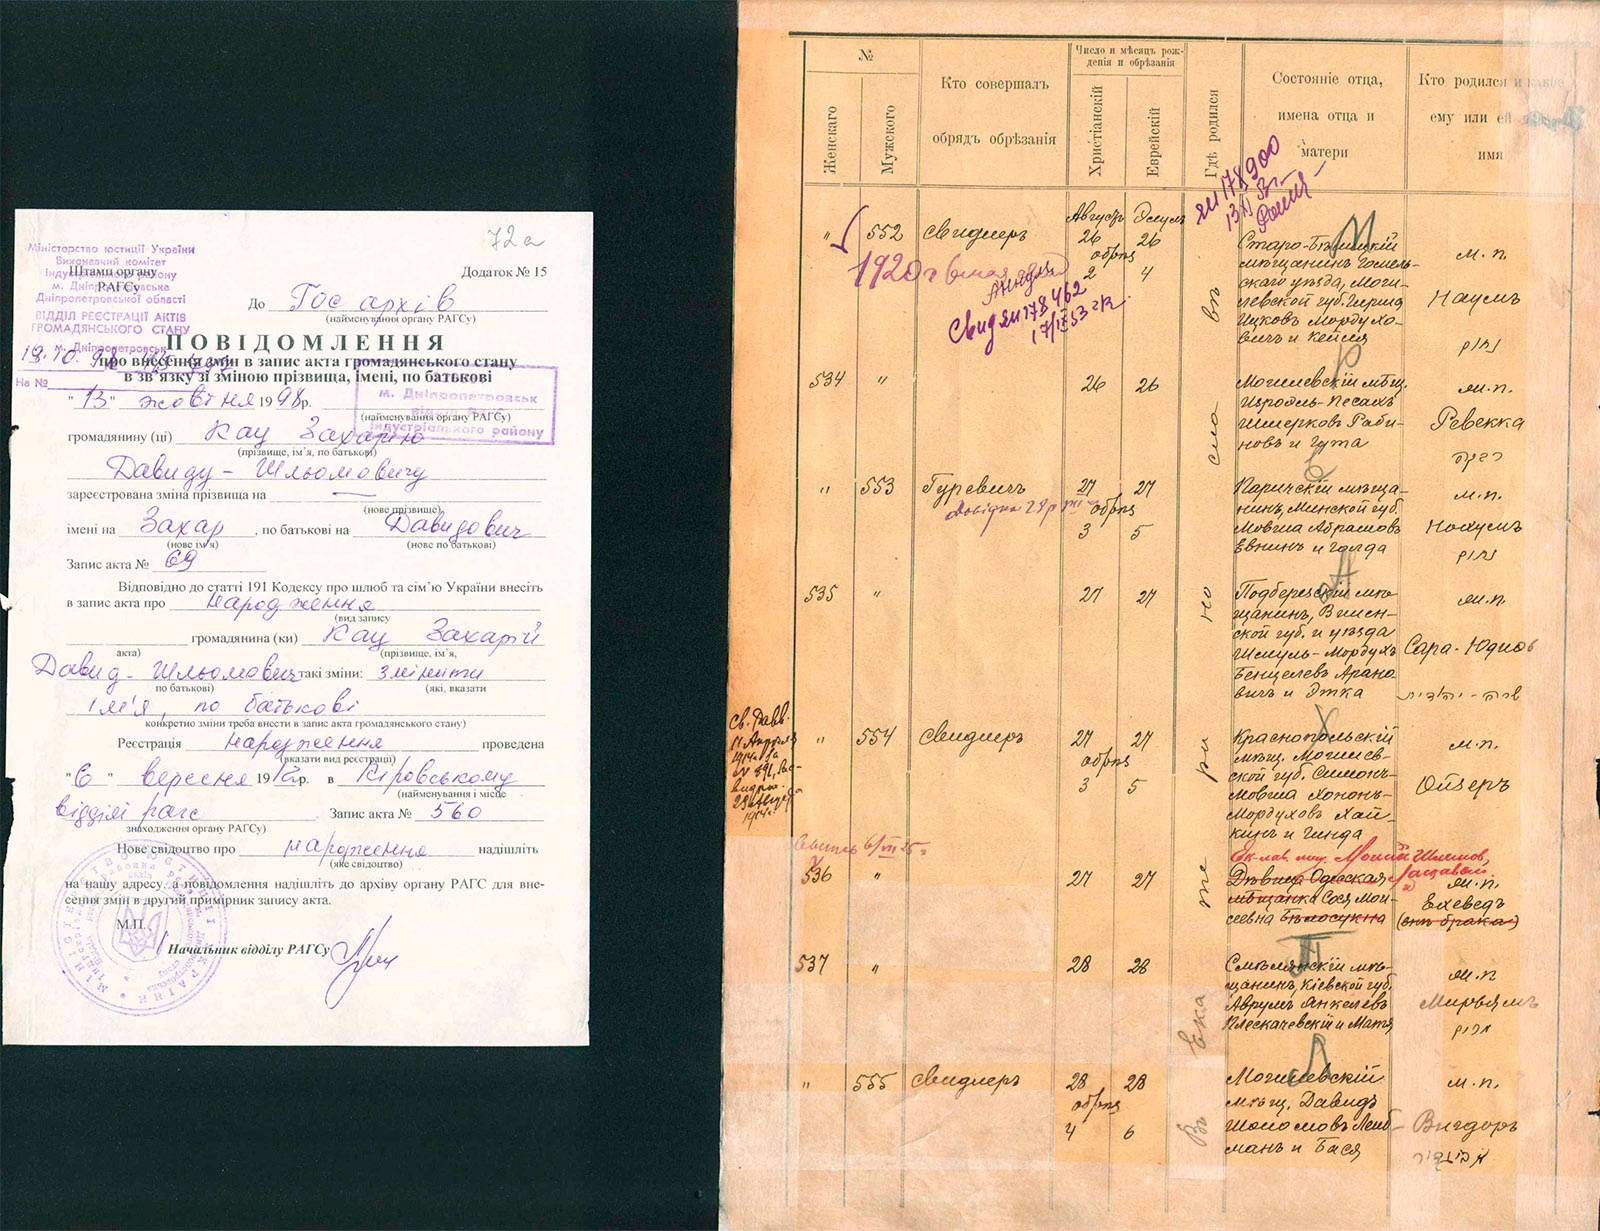 72а
Міністерство юстиції України
Виконавчий комітет
Індустріального району
м. Дніпропетровська
Дніпропетровської області
ВІДДІЛ РЕЄСТРАЦІЇ АКТІВ
ГРОМАДЯНСЬКОГО СТАНУ
м. Дніпропетровськ
Штамп органу
РАГСу
Додаток № 15
До Госархів
(найменування органу РАГСу)
ПОВІДОМЛЕННЯ
про внесення змін в запис акта громадянського стану
в зв’язку зі зміною прізвища, імені, по батькові
На №
"13" жовтня 1998р.
(найменування органу РАГСу)
м. Дніпропетровськ
Індустріального району
громадянину (ці) Кац Захарію
(прізвище, ім’я, по батькові)
Давиду-Шльомовичу
зареєстрована зміна прізвища на —
(нове прізвище)
імені на Захар, по батькові на Давидович
(нове ім’я) (нове по батькові)
Запис акта № 69
Відповідно до статті 191 Кодексу про шлюб та сім’ю України внесіть
в запис акта про народження
(вид запису
громадянина (ки) Кац Захарій
акта) (прізвище, ім’я,
Давид-Шльомович такі зміни: змінити
по батькові) (які, вказати
ім'я, по батькові
конкретно зміни треба внести в запис акта громадянського стану)
Реєстрація народження проведена
(вказати вид реєстрації)
"6" вересня 1912р. в Кіровському
(найменування і місце
відділі рагс. Запис акта № 560
знаходження органу РАГСу)
Нове свідоцтво про народження надішліть
(яке свідоцтво)
на нашу адресу, а повідомлення надішліть до архіву органу РАГС для вне-
сення змін в другий примірник запису акта.
М.П.
Начальник відділу РАГСу
№
Женскаго
Мужского
Кто совершалъ
обрядъ обрѣзанія
Число и мѣсяцъ рож-
денія и обрѣзанія
Христіанскій
Еврейскій
Гдѣ родился
Состояніе отца,
имена отца и
матери
Кто родился и какое
ему или ей
имя
ЯШ 178900
Августъ Элулъ
" 552 Свидлеръ 26 26
обрѣз
2 4
Свид ЯШ 178462
17/IX 53
Старо-Бѣлицкій
мѣщанинъ Гомель-
скаго уѣзда, Моги-
левской губ.
Ицковъ Мордухо-
вичъ и Кейся
м.п.
Наумъ
נחום
534 " 26 26
Могилевскій мѣщ.
Изроэль-Песахъ
Шмерковъ Раби-
новъ и Гута
ж.п.
Ревекка
רבקה
" 553 Гуревичъ 27 27
обрѣз
3 5
Паричскій мѣща-
нинъ, Минской губ.
Мовша Абрамовъ
Евнинъ и Голда
м.п.
Нохумъ
נחום
535 " 27 27
Подберезскій мѣ-
щанинъ, Вилен-
ской губ. и уѣзда
Шмуль-Мордухъ
Бенцелевъ Арано-
вичъ и Этка
ж.п.
Сара-Юдиѳь
שרה-יהודית
" 554 Свидлеръ 27 27
обрѣз
3 5
Краснопольскій
мѣщ. Могилев-
ской губ. Симонъ-
Мовша Хононъ-
Мордуховъ Хай-
кинъ и Гинда
м.п.
Ойзеръ
536 " 27 27
Дѣвица Одесская
мѣщанка Сося Мои-
сеевна Бѣлосукна
ж.п.
Ехеведъ
(внѣ брака)
537 " 28 28
Смѣлянскій мѣ-
щанинъ, Кіевской губ.
Аврумъ Янкелевъ
Плескачевскій и Матя
ж.п
Мирьямъ
מרים
" 555 Свидлеръ 28 28
обрѣз
4 6
Могилевскій
мѣщ. Давидъ
Шоломовъ Лейб-
манъ и Бася
м.п.
Вигдоръ
אביגדור
Въ Екатеринославѣ